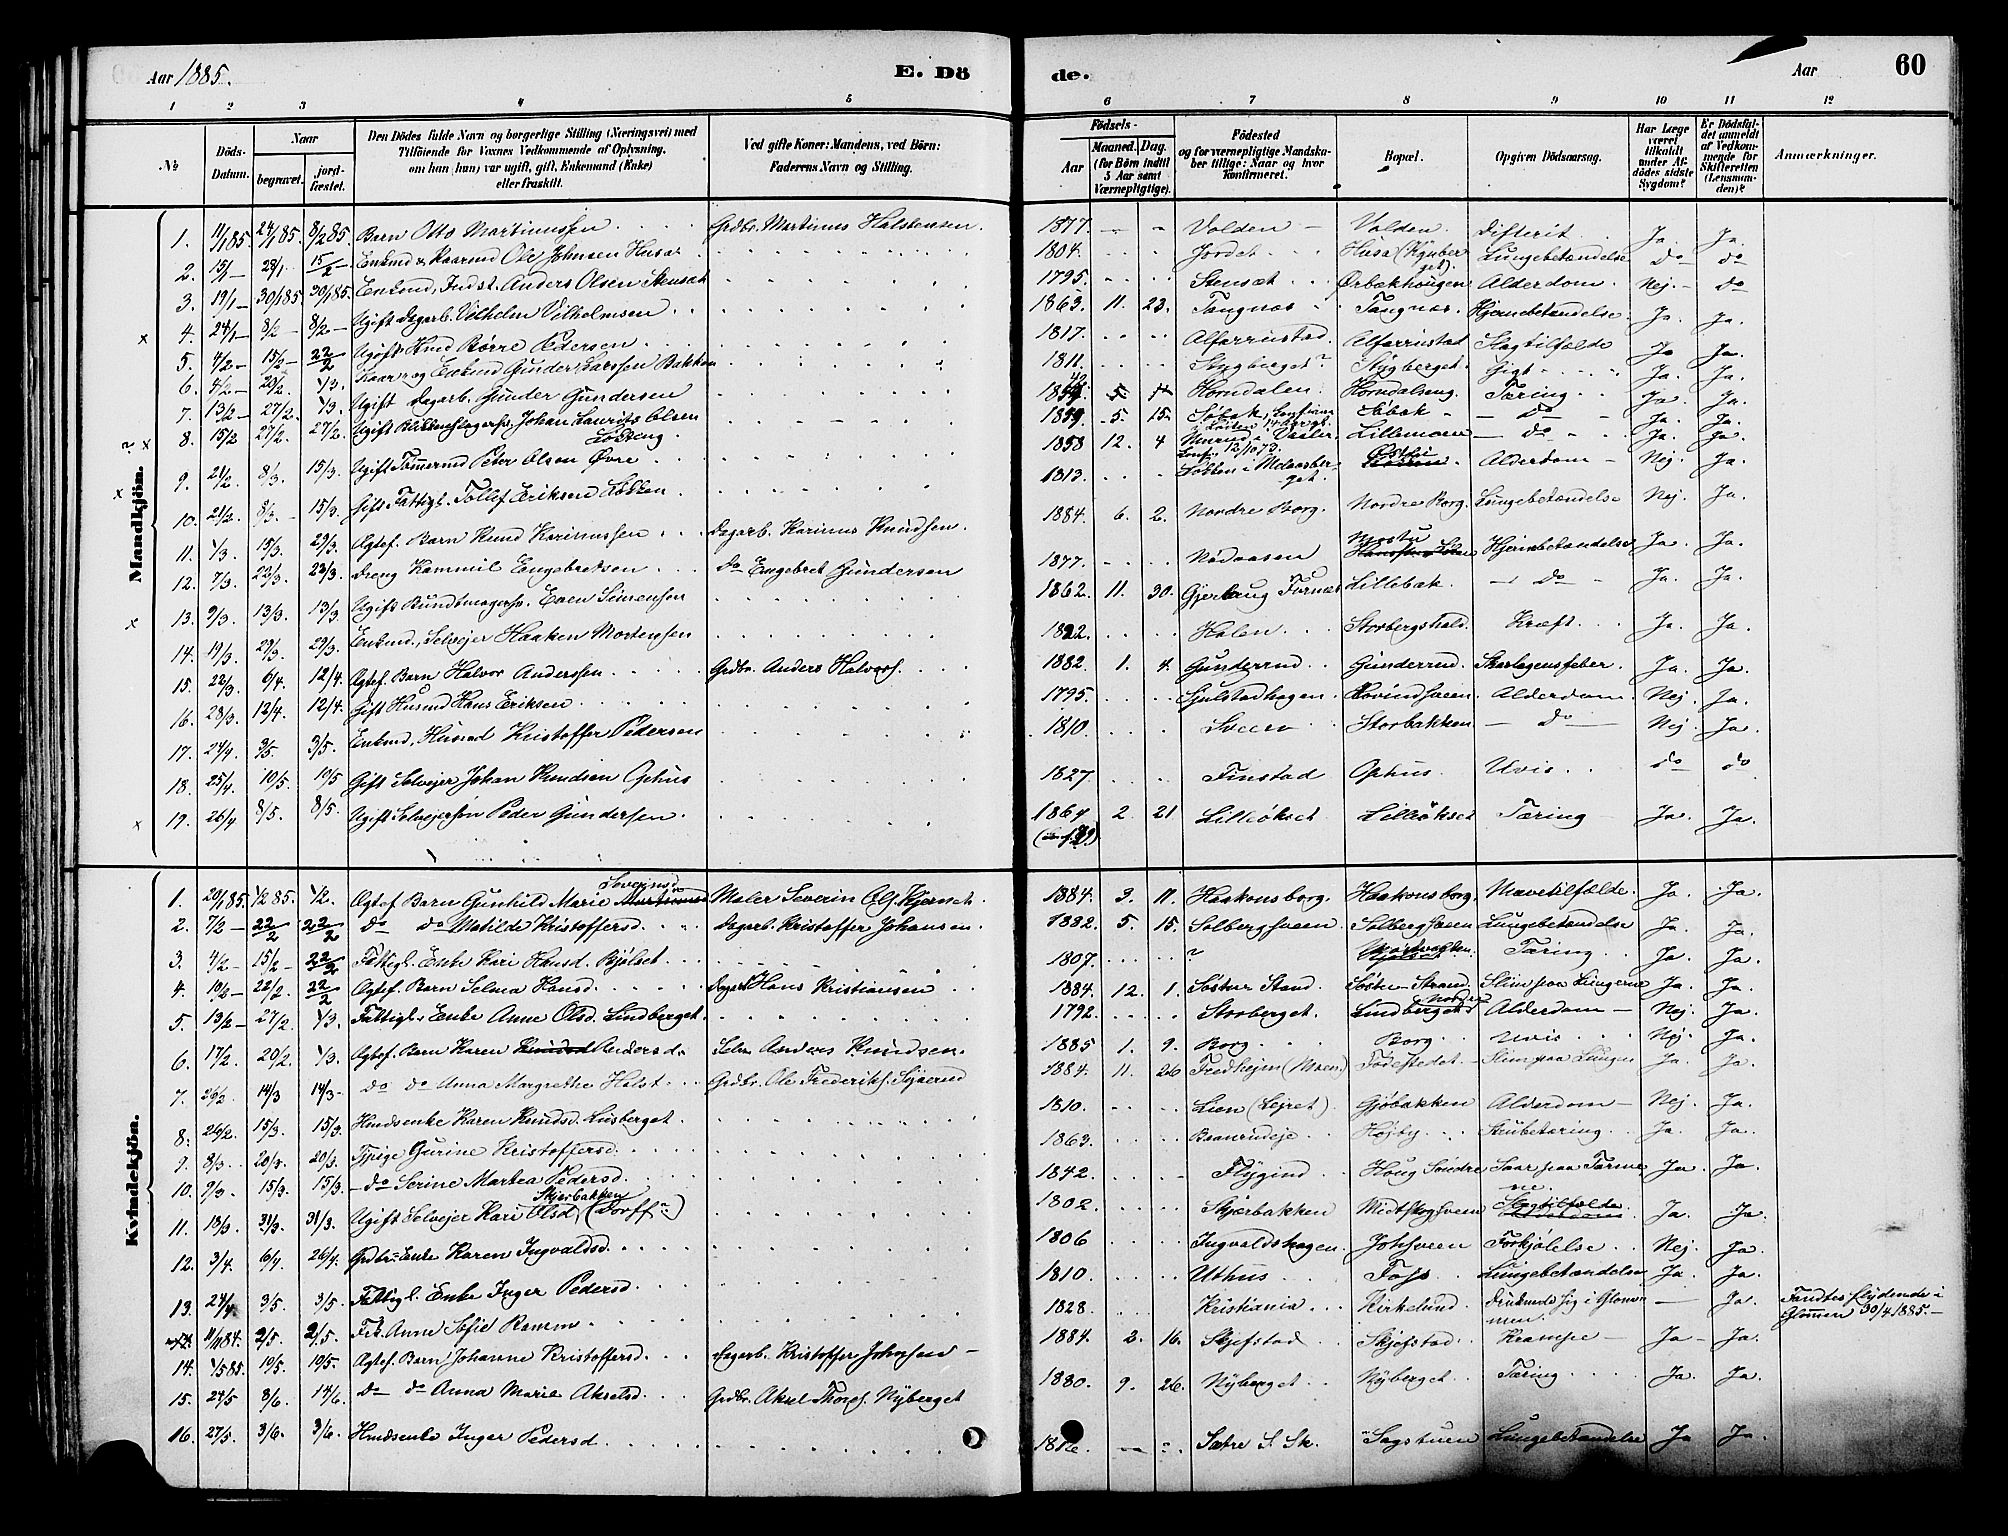 Aar 1885.
E. Dö
de.
Aar
60
1 2 3 4 5 6 7 8 9 10 11 12
No
Döds-Datum.
Naar
begravet.
jordfæstet.
Den Dödes fulde Navn og borgerlige Stilling (Næringsvei) med
Tilföiende for Voxnes Vedkommende af Oplysning,
om han (hun) var ugift, gift, Enkemand (Enke)
eller fraskilt.
Ved gifte Koner: Mandens, ved Börn:
Faderens Navn og Stilling.
Födsels-
Aar
Maaned. Dag.
(for Börn indtil
5 Aar samt
Værnepligtige).
Födested
og for værnepligtige Mandskaber tillige: Naar og hvor
konfirmeret.
Bopæl.
Opgiven Dödsaarsag.
Har Læge
været
tilkaldt
under Afdödes sidste
Sygdom?
Er Dödsfaldet anmeldt
af Vedkommende for
Skifteretten
(Lensmanden)?
Anmærkninger.
Mandkjön.
1. 11/1 85. 24/1 85. 8/2 85. Barn Otto Martinussen Grdbr. Martinus Halstensen. 1877. Volden Volden. Difterit Ja Ja.
2. 15/1 28/1 15/2 Enkmd & Kaarmd Ole Johnsen Husa 1804. Jordet Husa Lungebetændelse do do
3. 19/1 30/1 85. 30/1 85. Enkmd, Indst. Anders Olsen Stensæt 1795. Stensæt Ørbækhaugen Alderdom. Nej. do
4. 24/1 8/2 8/2 Ugift Dagarb. Vilhelm Vilhelmsen 1863. 11. 23. Tangnæs Tangnæs. Hjernebetændelse. Ja. Ja.
5. 4/2 15/2 22/2 Ugift Børre Pedersen 1817. Alfarrustad Alfarrustad Slagtilfælde Ja Ja.
6. 4/2 20/2 1/3. Kaarm. og Enkmd Gunder Larssen Bakken 1811. Stygberget? Stygberget. Gigt Ja. Ja.
7. 13/2 27/2. 1/3. Ugift Dagarb. Gunder Gundersen Horndalen Horndalseng. Tæring Ja. Ja.
8. 15/2 27/2. 27/2. Ugift Johan Laurits Olsen 1859. 5. 15. Søbak Søbak do Ja. Ja.
9. 21/2. 8/3. 15/3. Ugift Tømmermd Peter Olsen Øvre 1858 12. 4 Lillemoen do Ja. Ja.
10. 21/2. 8/3. 15/3. Gift Fattigl. Tollef Eriksen Løkken 1813. Alderdom Nej. Ja.
11. 1/3. 15/3. 29/3. Ægtef. Barn Knud Karinussen Dagarb. Karinus Knudsen. 1884. 6. 2. Nordre Borg. Nordre Borg. Lungebetændelse Nej. Ja.
12. 7/3. 22/3. 23/3. Dreng Kammil Engebretsen do Engebret Gundersen 1877. Nødaasen Hjernebetændelse Ja. Ja.
13. 9/3. 13/3. 13/3. Ugift Buntmagersv. Even Simensen 1862. 11. 30. Lillebæk. do Ja. Ja.
14. 19/3. 29/3. 29/3. Enkmd, Selvejer Haaken Mortensen 1822. Holen Storbergshald. Kræft. Ja. Ja.
15. 22/3. 6/4. 12/4. Ægtef. Barn Halvor Anderssen Grdbr. Anders Halvors. 1882. 1. 4. Gunderrud Gunderrud. Skarlagensfeber Ja. Ja.
16. 28/3. 13/4. 12/4. Gift Husmd Hans Eriksen 1795. Gjulstadhagen. Alderdom Nej. Ja.
17. 24/4. 3/5. 3/5. Enkmd, Husmd Kristoffer Pedersen 1810. Sveen Storbakken do Nej. Ja.
18. 25/4. 10/5. 10/5 Gift Selvejer Johan Knudsen Ophus 1827. Finstad Ophus Uvis do do
19. 26/4 8/5. 8/5. Ugift Selvejersøn Peder Gundersen. 1864 2 21 Lilleökset Lilleökset Tæring Ja. Ja.
Kvindekjön.
1. 20/1 85. 1/2 85. 1/2. Ægtef. Barn Gunhild Marie Severinsd Maler Severin Ols. Kjernet. 1884. 3. 11. Haakonsborg. Haakonsborg. Navetilfælde. Ja. Ja.
2. 7/2 22/2 22/2 do do Matilde Kristoffersd. Dagarb. Kristoffer Johansen. 1882. 5. 15. Solbergsveen. Solbergsveen Lungebetændelse Ja. Ja.
3. 4/2 15/2 22/2 Fattigl. Enke Kari Hansd. Bjølset 1807. ? Tæring Ja. Ja.
4. 10/2 22/2. 22/2 Ægtef. Barn Selma Hansd. Dagarb Hans Kristiansen 1884. 12. 1. Slim paa Lungerne Ja. Ja.
5. 13/2 27/2. 1/3. Fattigl. Enke Anne Olsd. Lindberget. 1792. Storberget. Lindberget Nordre Alderdom Nej. Ja.
6. 17/2. 20/2. 1/3. Ægtef. Barn Karen Andersd. Anders Knudsen. 1885 1. 9. Borg Borg Uvis Nej. Ja.
7. 26/2 14/3 14/3 do do Anna Margrethe Holst Grdbr. Ole Frederiks. 1884. 11. 26 Fredhejm (Moen) Fødestedet Slim paa Lungen Ja Ja.
8. 26/2. 15/3. 15/3 Husmdsenke Karen Knudsd. Lusberget. 1810. Lien (Lejret) Gjøbakken Alderdom Nej. Ja.
9. 8/3. 20/3. 20/3. Pige Gurine Kristoffersd. 1863. Højby Strubetæring. Ja. Ja.
10. 9/3. 15/3. 15/3. do Serine Martea Pedersd. 1842. Flygind Houg Søndre Saar paa Tarmene. Ja. Ja.
11. 18/3. 31/3. 31/3. Ugift Selvejer Kari Olsd. Skjærbakken (Dorff) 1802. Skjærbakken Midtskogsveen Slagtilfælde Ja. Ja.
12. 3/4. 6/4. 26/4. Grdbr. Enke Karen Ingvaldsd. 1806 Ingvaldshagen. Johsveen Forkjølelse Nej. Ja.
13. 24/4. 3/5. 3/5. Fattigl. Enke Inger Pedersd. 1810. Uthus Foss. Lungebetændelse Ja. Ja.
11/11 84. 2/5. 2/5. Frk. Anne Sofie Ramm 1828. Kristiania Kirkelund. druknede sig i Glommen. Ja. Fandtes flydende i
Glommen 30/4 1885.
14. 1/5 85. 10/5. 10/5. Ægtef. Barn Johanne Kristoffersd. Dagarb. Kristoffer Johansen 1884. 2. 16. Skjefstad Skjefstad Krampe Ja Ja.
15. 24/5 8/6. 14/6. do do Anna Marie Akselsd. Grdbr. Aksel Thors. Nyberget 1880. 9. 26. Nyberget Nyberget. Tæring Ja. Ja.
16. 27/5. 3/6. 3/6. Husmdsenke Inger Pedersd. Sætre S. Sk. Sagstuen Lungebetændelse Ja Ja.